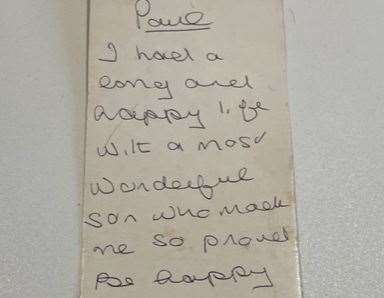 Paul
I had a
long and
happy life
with a most
wonderful
son who made
me so proud
Be happy